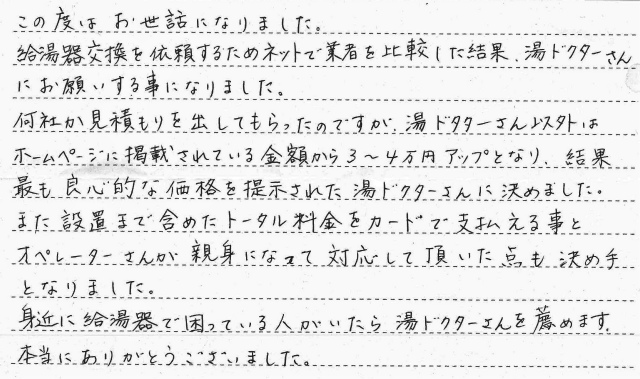 この度は お世話になりました。
給湯器交換を依頼するためネットで業者を比較した結果、湯ドクターさん
にお願いする事になりました。
何社か見積もりを出してもらったのですが、湯ドクターさん以外は
ホームページに掲載されている金額から3〜4万円アップとなり、結果
最も良心的な価格を提示された湯ドクターさんに決めました。
また設置まで含めたトータル料金をカードで支払える事と
オペレーターさんが親身になって対応して頂いた点も決め手
となりました。
身近に給湯器で困っている人がいたら湯ドクターさんを薦めます。
本当にありがとうございました。